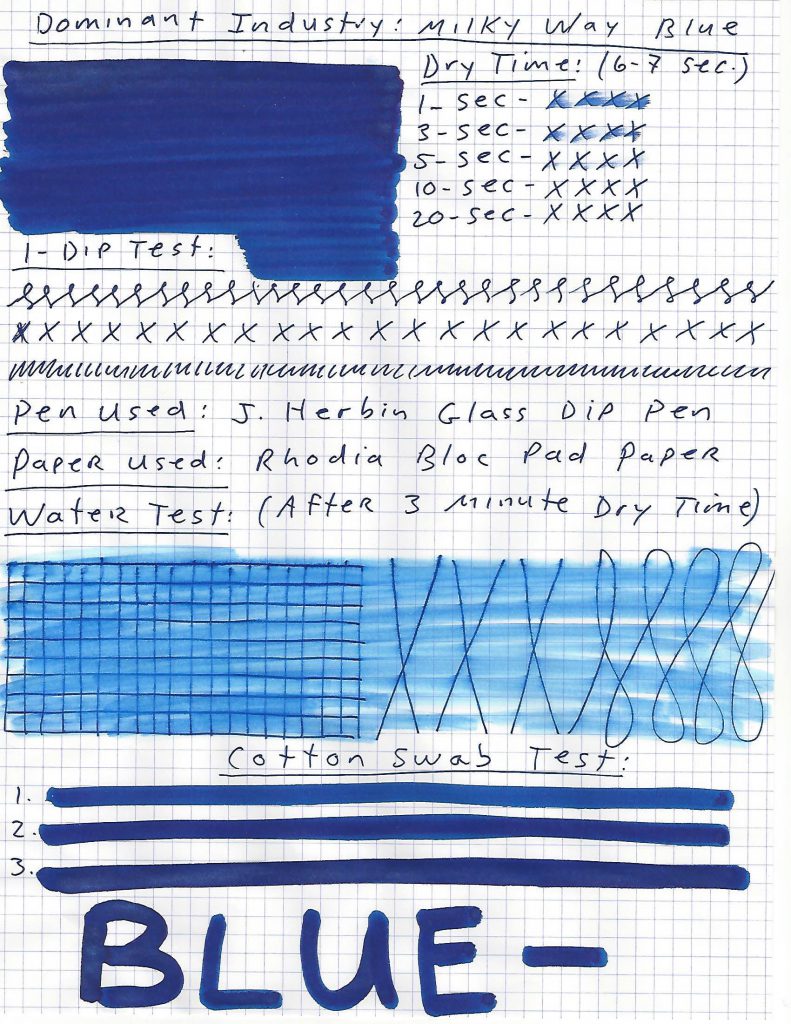 Dominant Industry: Milky Way Blue
Dry Time: (6-7 sec.)
1-sec- XXXX
3-sec- XXXX
5-sec- XXXX
10-sec- XXXX
20-sec- XXXX
1-Dip Test:
X X X X X X X X X X X X X X X X X X X X X X X
Pen Used: J. Herbin Glass Dip Pen
Paper Used: Rhodia Bloc Pad Paper
Water Test: (After 3 Minute Dry Time)
Cotton Swab Test:
1.
2.
3.
BLUE-